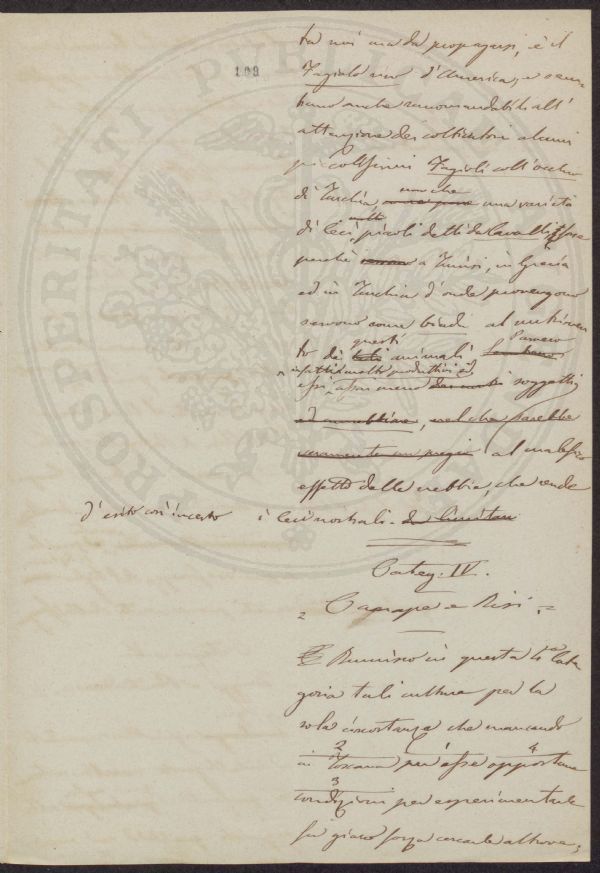 109
tra noi una da propagarsi, è il
Fagiolo nero d'America, e sem-
brano anche raccomandabili all'
attenzione dei coltivatori alcuni
piccolissimi Fagioli coll'occhio
di Turchia, nonché una varietà
di Ceci molto piccoli detti da Cavalli forse
perchè a Tunisi, in Grecia
ed in Turchia d'onde provengono
servono come biada al nutrimen
to di questi animali. Parvero
infatti molto produttivi ed
essi assai meno soggetti
al malefico
effetto della nebbia, che rende
d'esito così incerto i Ceci nostrali.
Categ. IV.
= Canape e Risi =
Riunisco in questa 4a Cate
goria tali culture per la
sola circostanza che mancando
in Toscana per esse opportune
condizioni per esperimentarle
fu giuoco forza cercarle altrove,
PROSPERITATI PUBLICAE